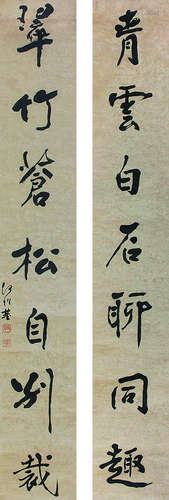 青雲白石聊同趣
翠竹蒼松自別裁